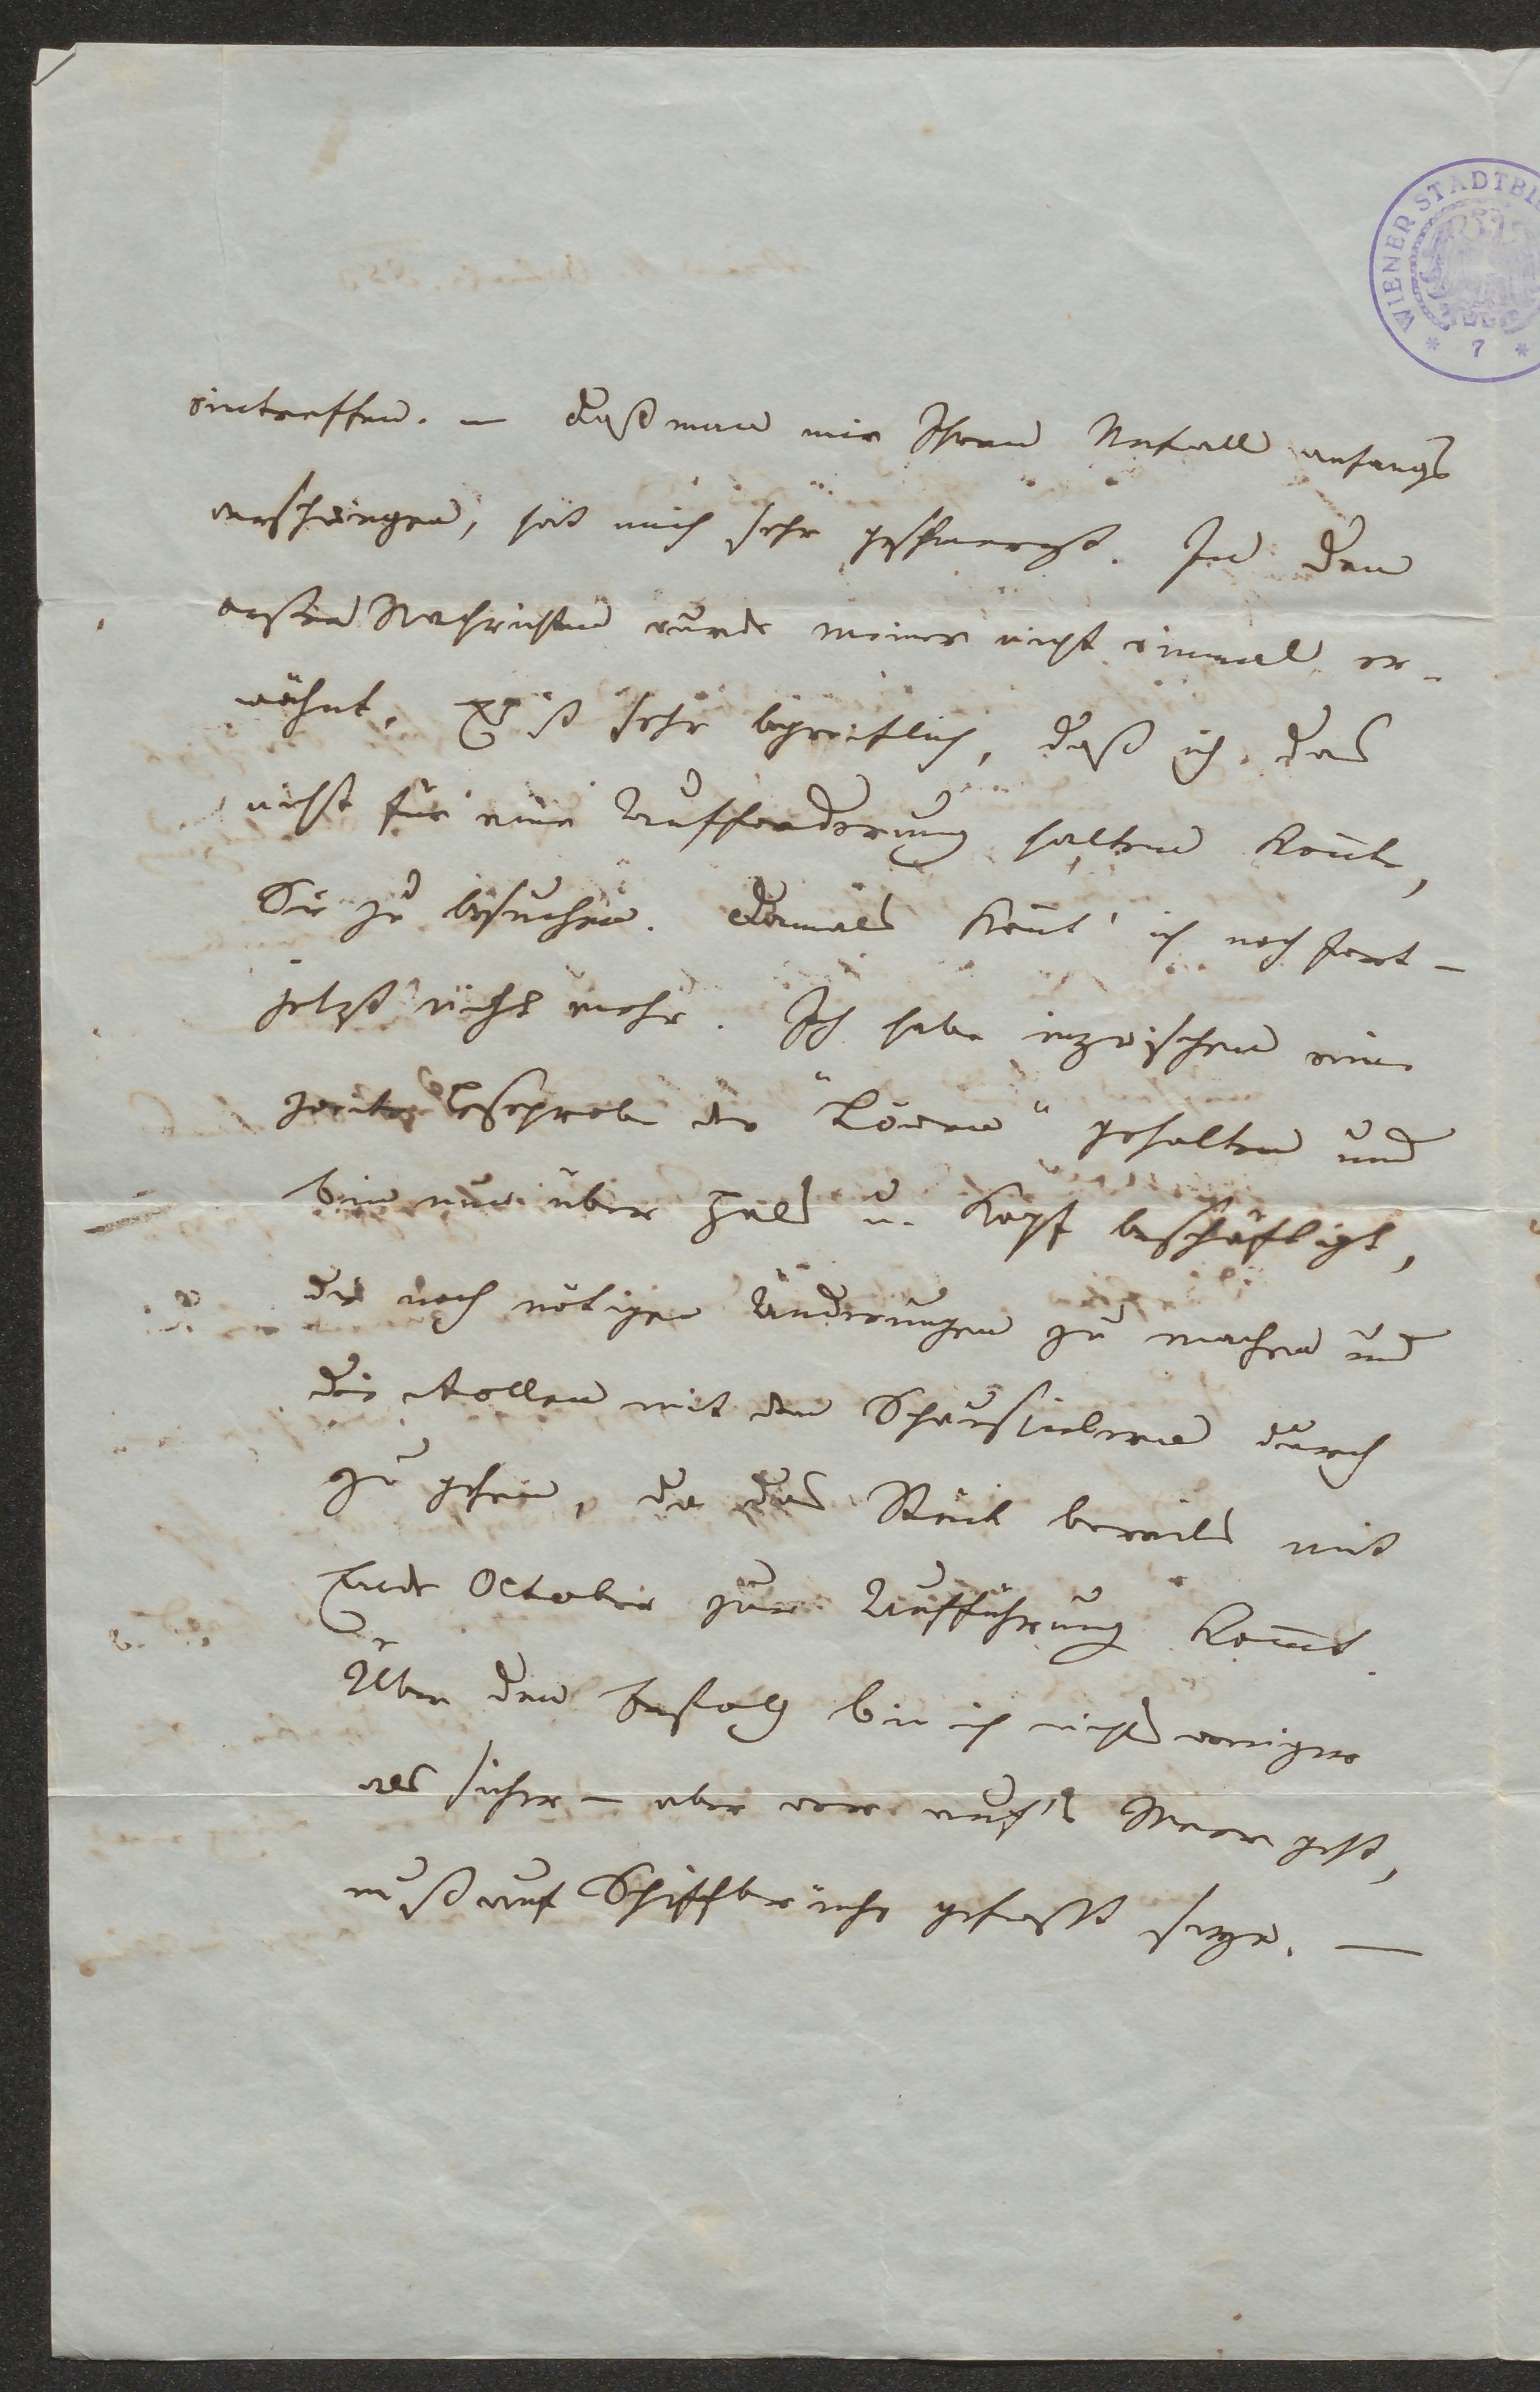 WIENER STADTBI
* 7 *
eintreffen. – Daß man mir Ihren Unfall anfangs
verschwiegen, hat mich sehr geschmerzt. In den
ersten Nachrichten wurde meiner nicht einmal er-
wähnt. Es ist sehr begreiflich, daß ich das
nicht für eine Aufforderung halten konnte,
Sie zu besuchen. Damals konnt' ich noch fort –
jetzt nicht mehr. Ich habe inzwischen eine
zweite Leseprobe der "Löwen" gehalten und
bin nun über Hals u. Kopf beschäftigt,
die noch nötigen Änderungen zu machen und
die Rollen mit den Schauspielern durch
zu gehen, da das Stück bereits mit
Ende October zur Aufführung kommt.
Über den Erfolg bin ich nichts weniger
als sicher – aber wer auf's Meer geht,
muß auf Schiffbrüche gefasst seyn. –